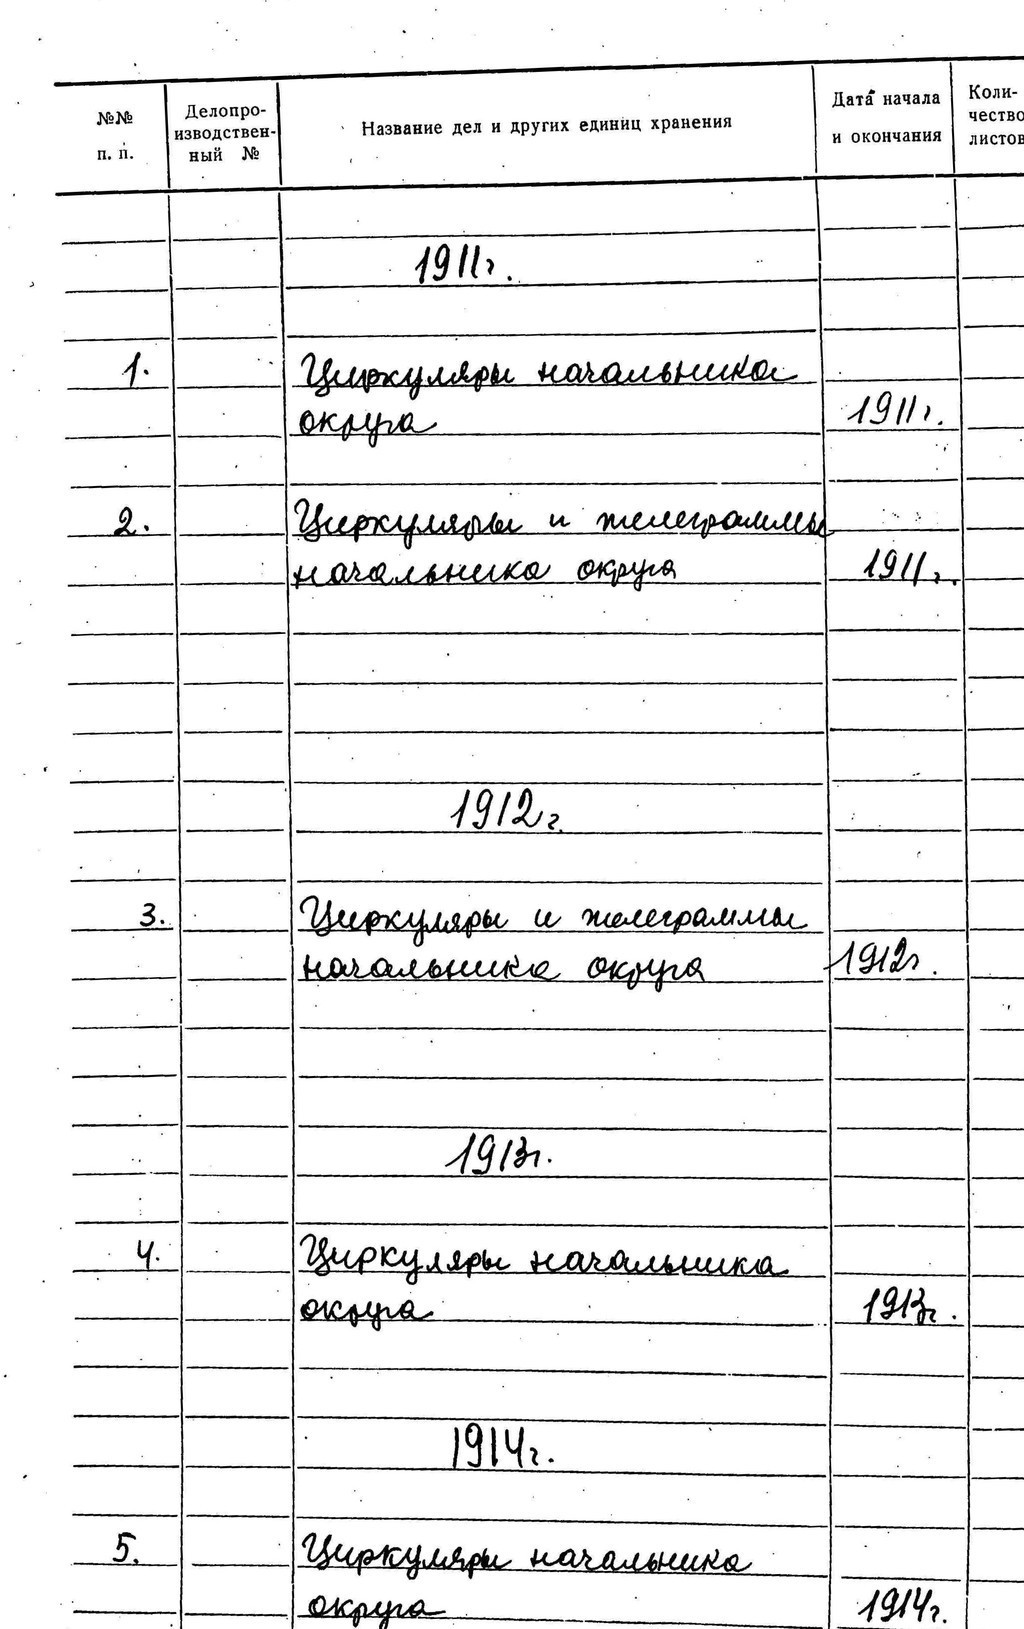 №№ п. п.
Делопро-
изводствен-
ный №
Название дел и других единиц хранения
Дата начала
и окончания
Коли-
чество
листов
1911г.
1. Циркуляры начальника
округа 1911г.
2. Циркуляры и телеграммы
начальника округа 1911г.
1912г.
3. Циркуляры и телеграммы
начальника округа 1912г.
1913г.
4. Циркуляры начальника
округа 1913г.
1914г.
5. Циркуляры начальника
округа 1914г.